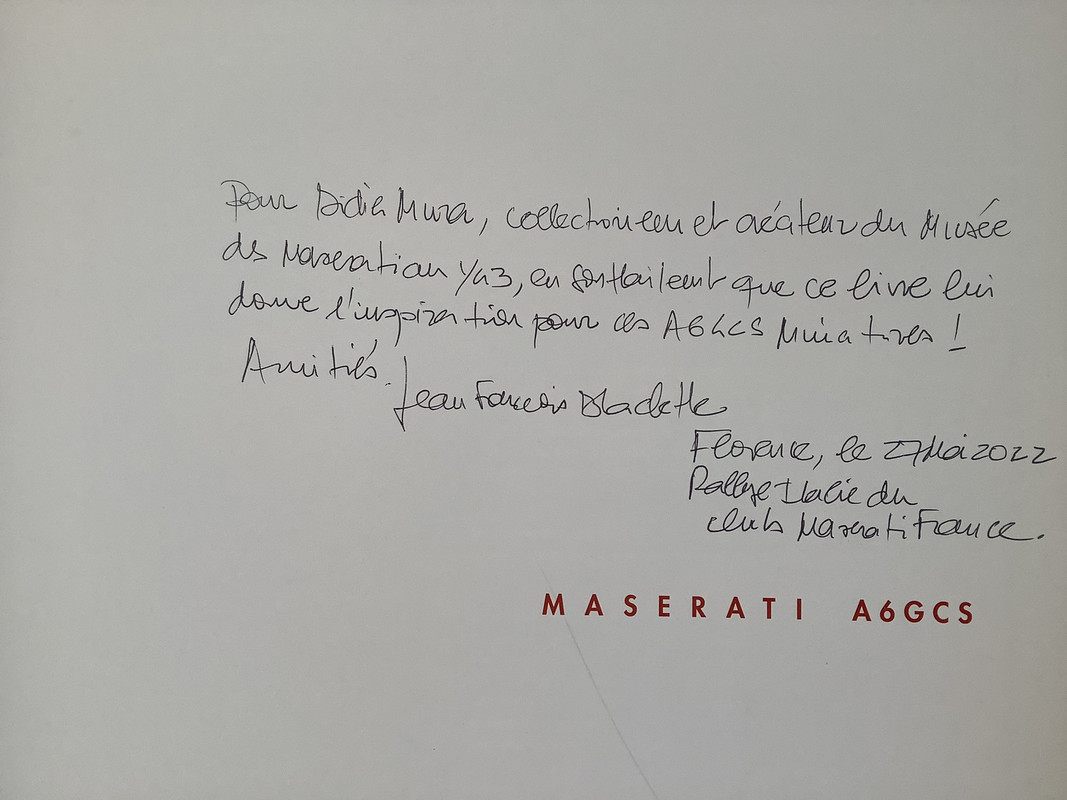 Pour Didier Mura, collectionneur et créateur du Musée
des Maserati au 1/43, en souhaitant que ce livre lui
donne l'inspiration pour ces A6GCS Miniatures !
Amitiés. Jean François
Florence, le 27 Mai 2022
Rallye Italie du
club Maserati France.
MASERATI A6GCS